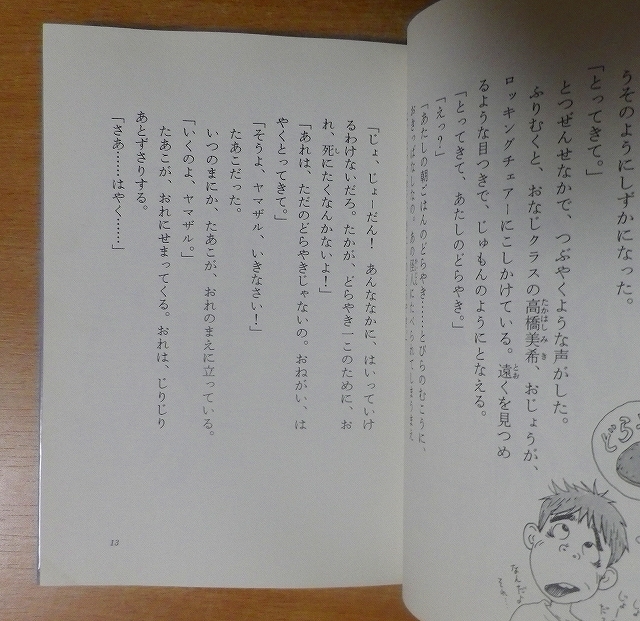 うそのようにしずかになった。
「とってきて。」
とつぜんせなかで、つぶやくような声がした。
ふりむくと、おなじクラスの高橋美希、おじょうが、
たかはしみき
ロッキングチェアーにこしかけている。遠くを見つめ
とお
るような目つきで、じゅもんのようにとなえる。
「とってきて、あたしのどらやき。」
「えっ？」
「あたしの朝ごはんのどらやき……とびらのむこうに、
どら
なんだよ
「じょ、じょーだん！　あんななかに、はいっていけ
るわけないだろ。たかが、どらやき一このために、お
れ、死にたくなんかないよ！」
し
「あれは、ただのどらやきじゃないの。おねがい、は
やくとってきて。」
「そうよ、ヤマザル、いきなさい！」
たあこだった。
いつのまにか、たあこが、おれのまえに立っている。
「いくのよ、ヤマザル。」
たあこが、おれにせまってくる。おれは、じりじり
あとずさりする。
「さあ……はやく……」
13